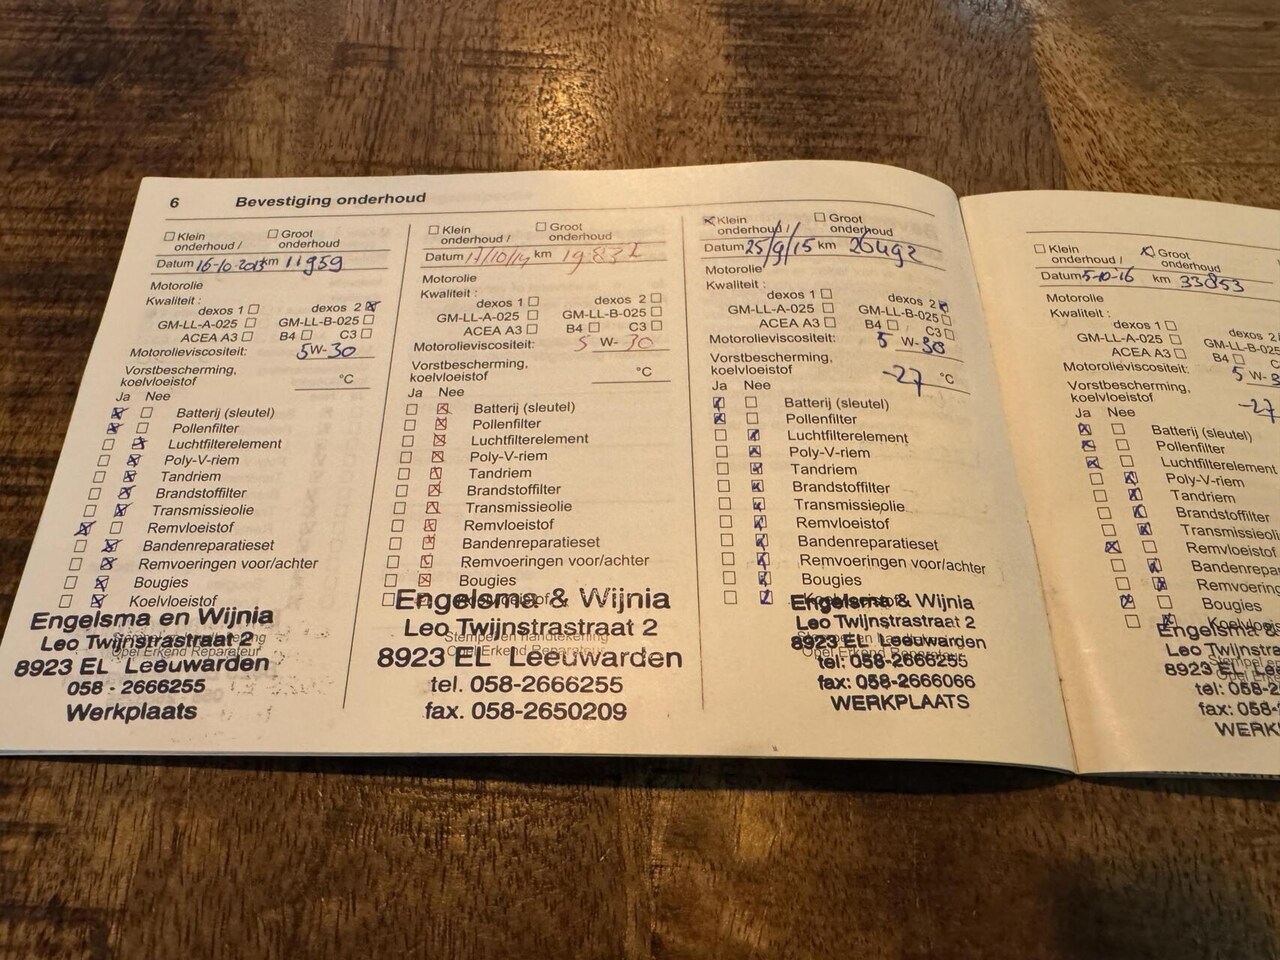 6 Bevestiging onderhoud
Klein onderhoud / Groot onderhoud
Datum 16-10-2013 km 11959
Motorolie
Kwaliteit :
dexos 1 dexos 2
GM-LL-A-025 GM-LL-B-025
ACEA A3 B4 C3
Motorolieviscositeit: 5W-30
Vorstbescherming,
koelvloeistof °C
Ja Nee
Batterij (sleutel)
Pollenfilter
Luchtfilterelement
Poly-V-riem
Tandriem
Brandstoffilter
Transmissieolie
Remvloeistof
Bandenreparatieset
Remvoeringen voor/achter
Bougies
Koelvloeistof
Engelsma en Wijnia
Leo Twijnstrastraat 2
8923 EL Leeuwarden
058 - 2666255
Werkplaats
Klein onderhoud / Groot onderhoud
Datum /10/14 km
Motorolie
Kwaliteit :
dexos 1 dexos 2
GM-LL-A-025 GM-LL-B-025
ACEA A3 B4 C3
Motorolieviscositeit: 5 W- 30
Vorstbescherming,
koelvloeistof °C
Ja Nee
Batterij (sleutel)
Pollenfilter
Luchtfilterelement
Poly-V-riem
Tandriem
Brandstoffilter
Transmissieolie
Remvloeistof
Bandenreparatieset
Remvoeringen voor/achter
Bougies
Engelsma & Wijnia
Leo Twijnstrastraat 2
Stempel en handtekening
8923 EL Leeuwarden
Opel Erkend Reparateur
tel. 058-2666255
fax. 058-2650209
Klein onderhoud / Groot onderhoud
Datum 25/9/15 km 26492
Motorolie
Kwaliteit :
dexos 1 dexos 2
GM-LL-A-025 GM-LL-B-025
ACEA A3 B4 C3
Motorolieviscositeit: 5 W- 30
Vorstbescherming,
koelvloeistof -27 °C
Ja Nee
Batterij (sleutel)
Pollenfilter
Luchtfilterelement
Poly-V-riem
Tandriem
Brandstoffilter
Transmissieolie
Remvloeistof
Bandenreparatieset
Remvoeringen voor/achter
Bougies
Engelsma & Wijnia
Leo Twijnstrastraat 2
8923 EL Leeuwarden
tel: 058-2666255
fax: 058-2666066
WERKPLAATS
Klein onderhoud / Groot onderhoud
Datum 5-10-16 km 33853
Motorolie
Kwaliteit :
dexos 1 dexos 2
GM-LL-A-025 GM-LL-B-02
ACEA A3 B4
Motorolieviscositeit: 5 W-
Vorstbescherming,
koelvloeistof -27
Ja Nee
Batterij (sleutel)
Pollenfilter
Luchtfilterelement
Poly-V-riem
Tandriem
Brandstoffilter
Transmissieoli
Remvloeistof
Bandenrepar
Remvoering
Bougies
Engelsma &
Leo Twijnstra
8923 EL Le
tel: 058-2
fax: 058-
WERK